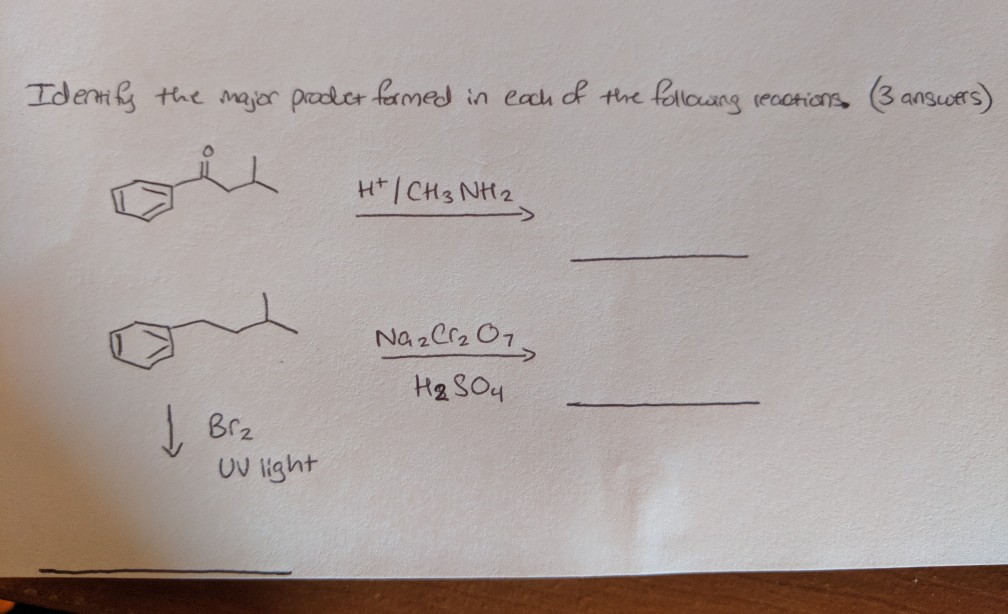 Identify the major product formed in each of the following reactions. (3 answers)
O
H+/CH3NH2
Na2Cr2O7
H2SO4
Br2
UV light